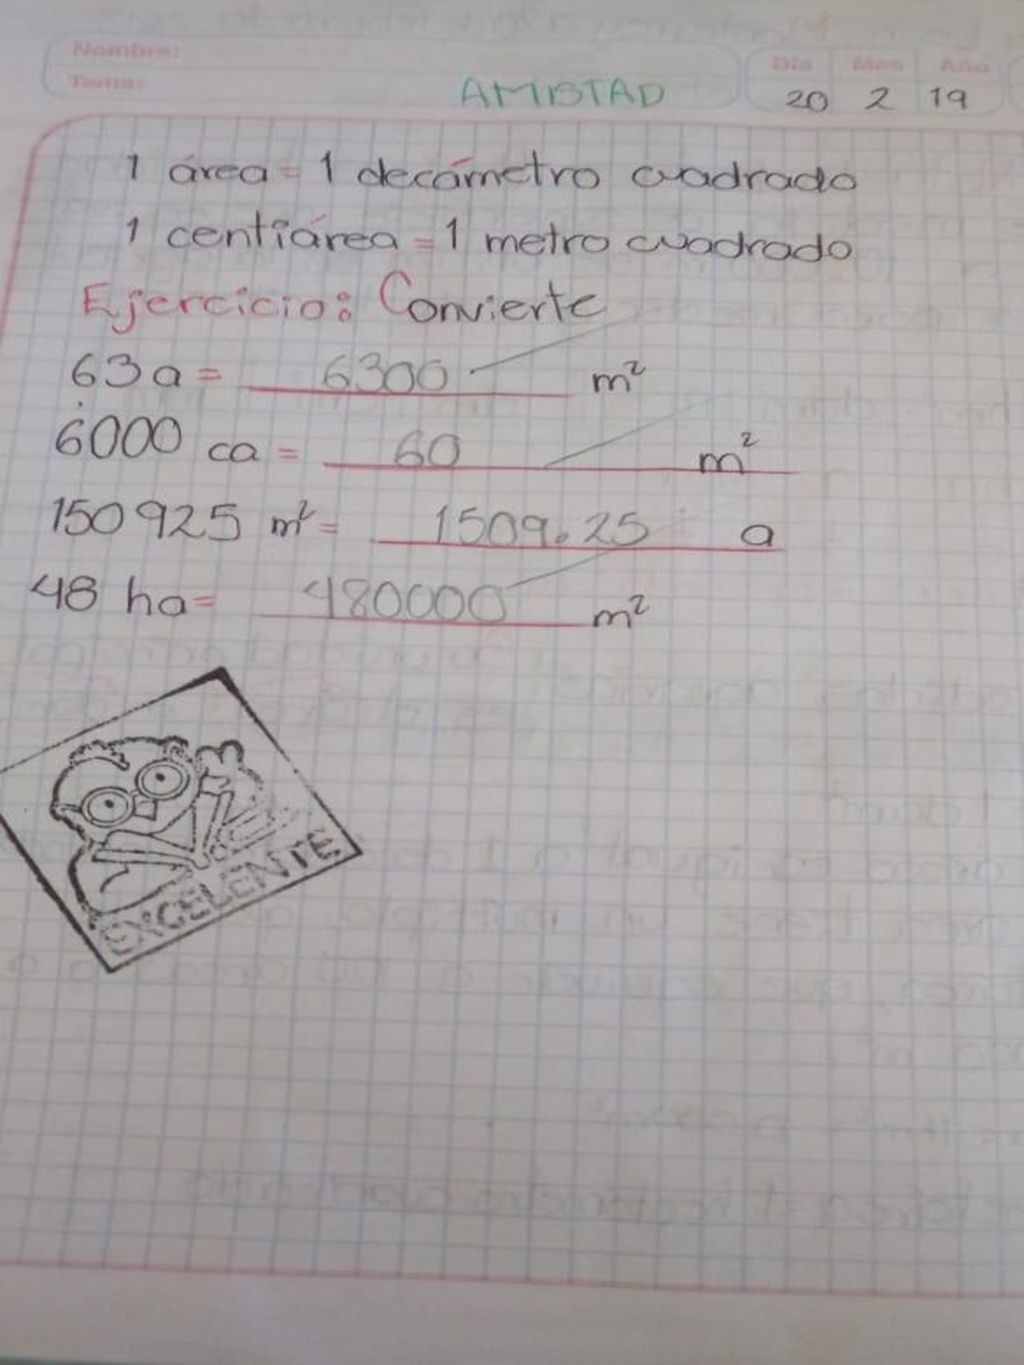 Nombre:
Tema:
AMISTAD
Día Mes Año
20 2 19
1 área = 1 decámetro cuadrado
1 centiárea = 1 metro cuadrado
Ejercicio: Convierte
63 a = 6300 m²
6000 ca = 60 m²
150925 m² = 1509.25 a
48 ha = 480000 m²
EXCELENTE